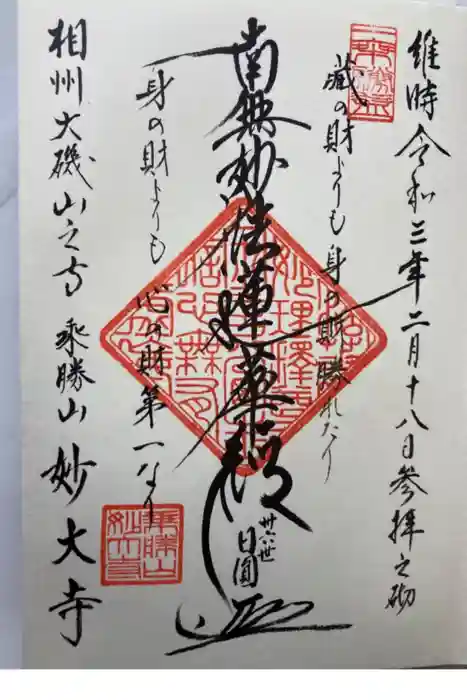 維時令和三年二月十八日参拝之砌
蔵の財よりも身の財勝れたり
南無妙法蓮華経
卅六世
日圓
身の財よりも心の財第一なり
相州大磯山之寺 乘勝山 妙大寺
乘勝山
妙大寺